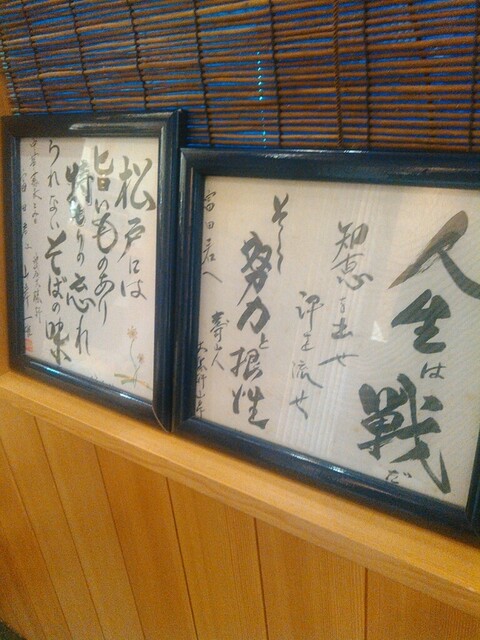 人生は
戦だ
知恵を出せ
汗を流せ
そして
努力と根性
富田君へ
松戸には
旨いものあり
特もりの忘れ
られないそばの味